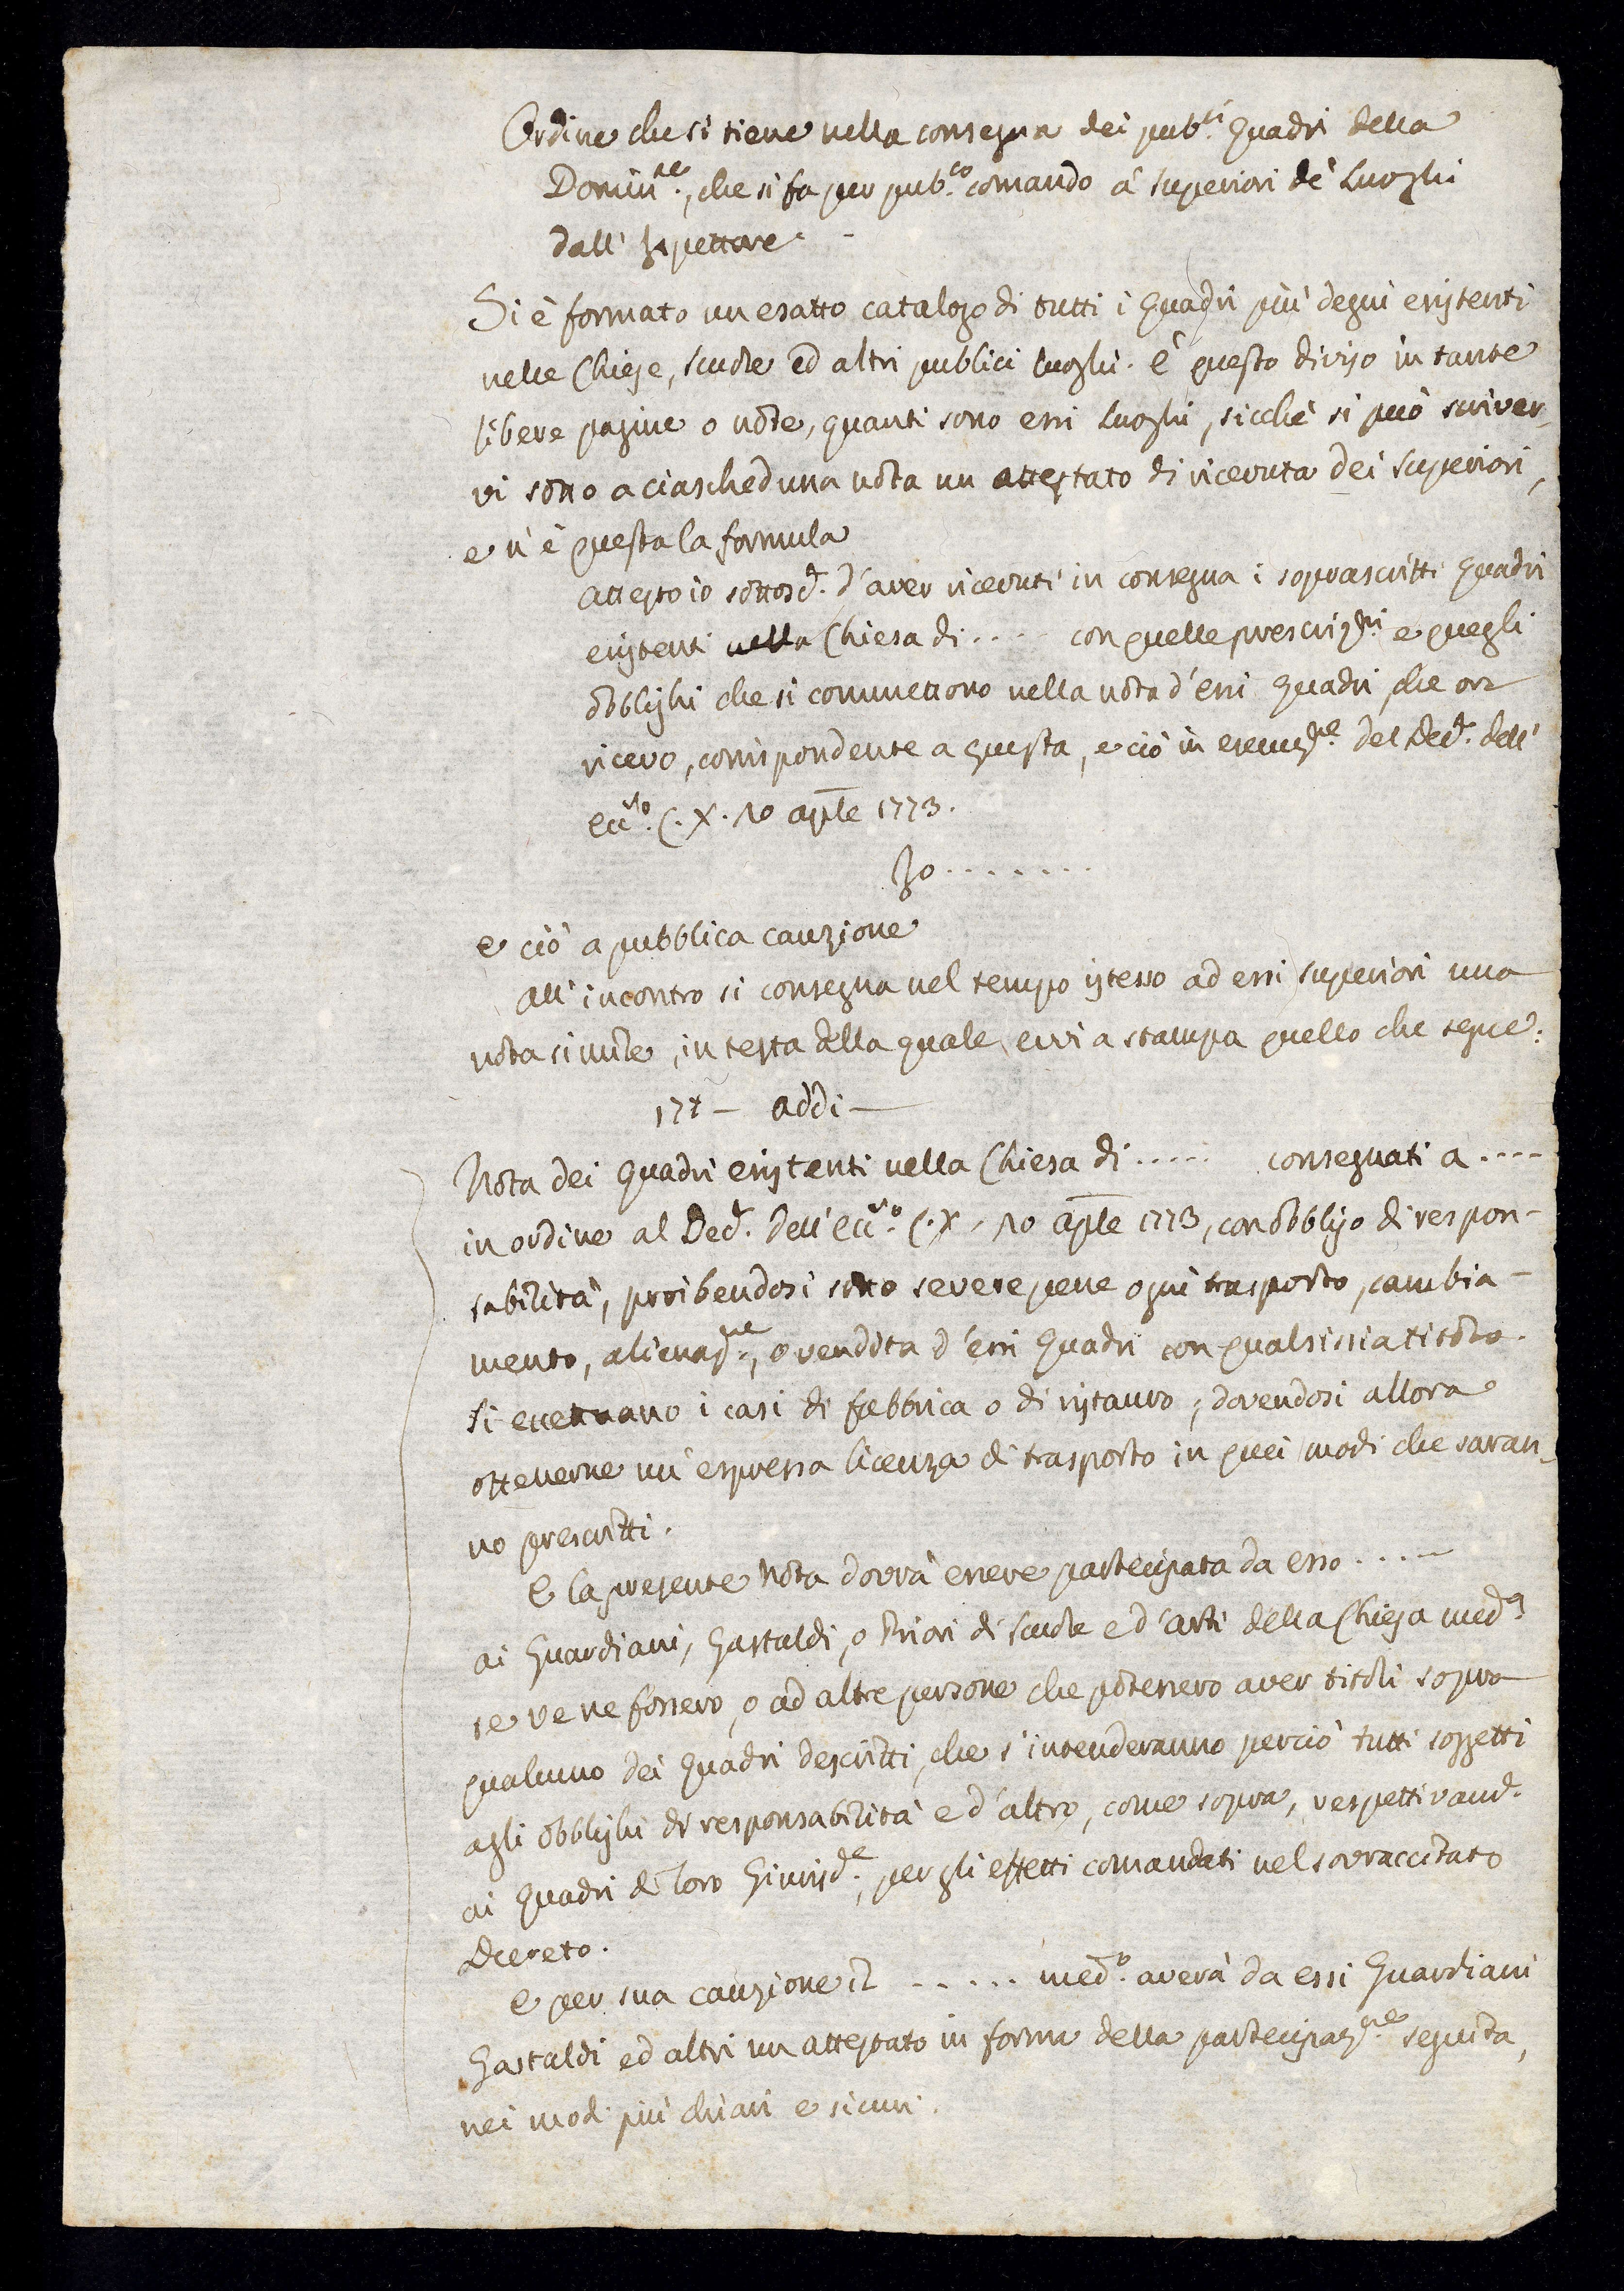 Ordine che si tiene nella consegna dei pub.ci Quadri della
Domin.ne, che si fa per pub.co comando a' Superiori de' Luoghi
dall' Ispettore.
Si è formato un esatto catalogo di tutti i Quadri più degni esistenti
nelle Chiese, Scuole ed altri publici luoghi. È questo diviso in tante
libere pagine o note, quanti sono essi Luoghi, sicchè si può scriver-
vi sotto a ciascheduna nota un attestato di ricevuta dei Superiori,
e n' è questa la formula
Attesto io sottosc.o d'aver ricevuti in consegna i soprascritti Quadri
esistenti nella Chiesa di .... con quelle prescriz.ni e quegli
obblighi che si commettono nella nota d'essi Quadri, che or
ricevo, corrispondente a questa, e ciò in esecuz.ne del Dec.o dell'
Ecc.so C. X. 20 ap̅le 1773.
Io ........
e ciò a pubblica cauzione
All' incontro si consegna nel tempo istesso ad essi superiori una
nota simile, in testa della quale evvi a stampa quello che segue:
177 — addi —
Nota dei Quadri esistenti nella Chiesa di ..... consegnati a ....
in ordine al Dec.o dell' Ecc.so C. X. 20 Ap̅le 1773, con obbligo di respon-
sabilità, proibendosi sotto severe pene ogni trasporto, cambia-
mento, alienaz.ne, o vendita d'essi Quadri con qualsissia titolo.
Si eccettuano i casi di fabbrica o di ristauro; dovendosi allora
ottenerne un' espressa licenza di trasporto in quei modi che saran-
no prescritti.
E la presente Nota dovrà essere partecipata da esso .....
ai Guardiani, Gastaldi, o Priori di Scuole e d'arti della Chiesa med.a
se ve ne fossero, o ad altre persone che potessero aver titoli sopra
qualcuno dei Quadri descritti, che s'intenderanno perciò tutti soggetti
agli obblighi di responsabilità e d'altro, come sopra, respettivam.e
ai Quadri di loro Giurisd.e, per gli effetti comandati nel sovraccitato
Decreto.
E per sua cauzione il ..... med.o averà da essi Guardiani
Gastaldi ed altri un attestato in forma della partecipaz.ne seguita,
nei modi più chiari e sicuri.